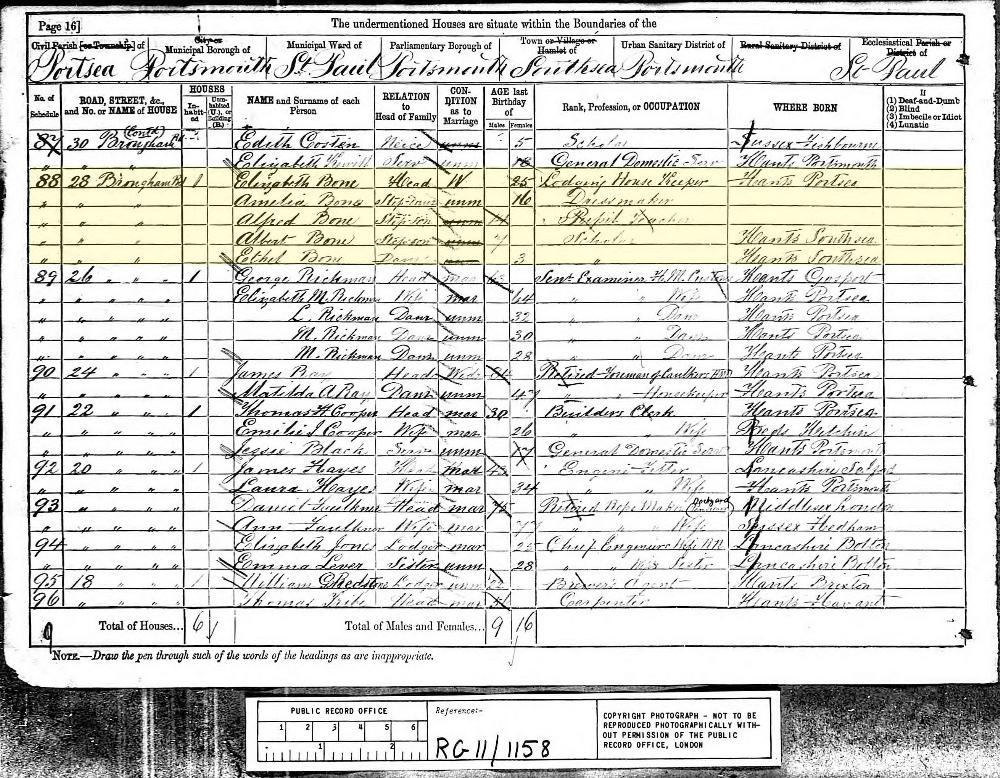 Page 16]
The undermentioned Houses are situate within the Boundaries of the
Civil Parish [or Township] of
City or Municipal Borough of
Municipal Ward of
Parliamentary Borough of
Town or Village or Hamlet of
Urban Sanitary District of
Rural Sanitary District of
Ecclesiastical Parish or District of
Portsea Portsmouth St. Paul Portsmouth Southsea Portsmouth St Paul
No. of Schedule
ROAD, STREET, &c., and No. or NAME of HOUSE
HOUSES
Inhabited
Uninhabited (U.), or Building (B.)
NAME and Surname of each Person
RELATION to Head of Family
CONDITION as to Marriage
AGE last Birthday of
Males Females
Rank, Profession, or OCCUPATION
WHERE BORN
If
(1) Deaf-and-Dumb
(2) Blind
(3) Imbecile or Idiot
(4) Lunatic
87 30 Brougham Rd (Contd) Edith Costen Neice 5 Scholar Sussex Fishbourne
" " Elizabeth Serv unm 18 General Domestic Serv Hants Portsmouth
88 28 Brougham Rd 1 Elizabeth Bone Head W 25 Lodging House Keeper Hants Portsea
" " " Amelia Bone Step Daur unm 16 Dressmaker
" " " Alfred Bone Step Son 14 Pupil Teacher
" " " Albert Bone Stepson 7 Scholar Hants Southsea
" " " Ethel Bone Daur 3 " Hants Southsea
89 26 " " 1 George Rickman Head mar 63 Examiner H.M. Customs Hants Gosport
" " " Elizabeth M. Rickman Wife mar 64 " Wife Hants Portsea
" " " L. Rickman Daur unm 32 " Daur Hants Portsea
" " " M. Rickman Daur unm 30 " Daur Hants Portsea
" " " M. Rickman Daur unm 28 " Daur Hants Portsea
90 24 " " 1 James Ray Head Widr Retired Foreman of Caulkers Hants Portsea
" " " Matilda A Ray Daur unm 47 " Housekeeper Hants Portsea
91 22 " " 1 Thomas H. Cooper Head mar 30 Builders Clerk Hants Portsea
" " " Emilie J. Cooper Wife mar 26 " Wife Hitchin
" " " Jessie Black Serv unm 17 General Domestic Serv Hants Portsmouth
92 20 " " 1 James Hayes Head mar Engine Fitter Lancashire Salford
" " " Laura Hayes Wife mar 34 " " Wife Hants Portsmouth
93 " " " Daniel Faulkner Head mar 75 Retired Rope Maker Dockyard Middlesex London
" " " Ann Faulkner Wife mar 77 " " Wife Sussex
94 " " " Elizabeth Jones Lodger mar Chief Engineers Wife RN Lancashire Bolton
" " " Emma Lever Sister unm 28 " " Wifes Sister Lancashire Bolton
95 18 " " 1 William Lodger unm 22 Brewers Agent Hants Brixton
96 " " " Thomas Head mar Carpenter Hants Havant
9 Total of Houses... 6
Total of Males and Females... 9 16
NOTE.—Draw the pen through such of the words of the headings as are inappropriate.
PUBLIC RECORD OFFICE
1 2 3 4 5 6
1 2
Reference:-
RG 11/1158
COPYRIGHT PHOTOGRAPH - NOT TO BE REPRODUCED PHOTOGRAPHICALLY WITHOUT PERMISSION OF THE PUBLIC RECORD OFFICE, LONDON